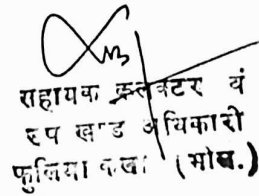 सहायक कलेक्टर एवं
उप खण्ड अधिकारी
फुलिया कलां (भील.)